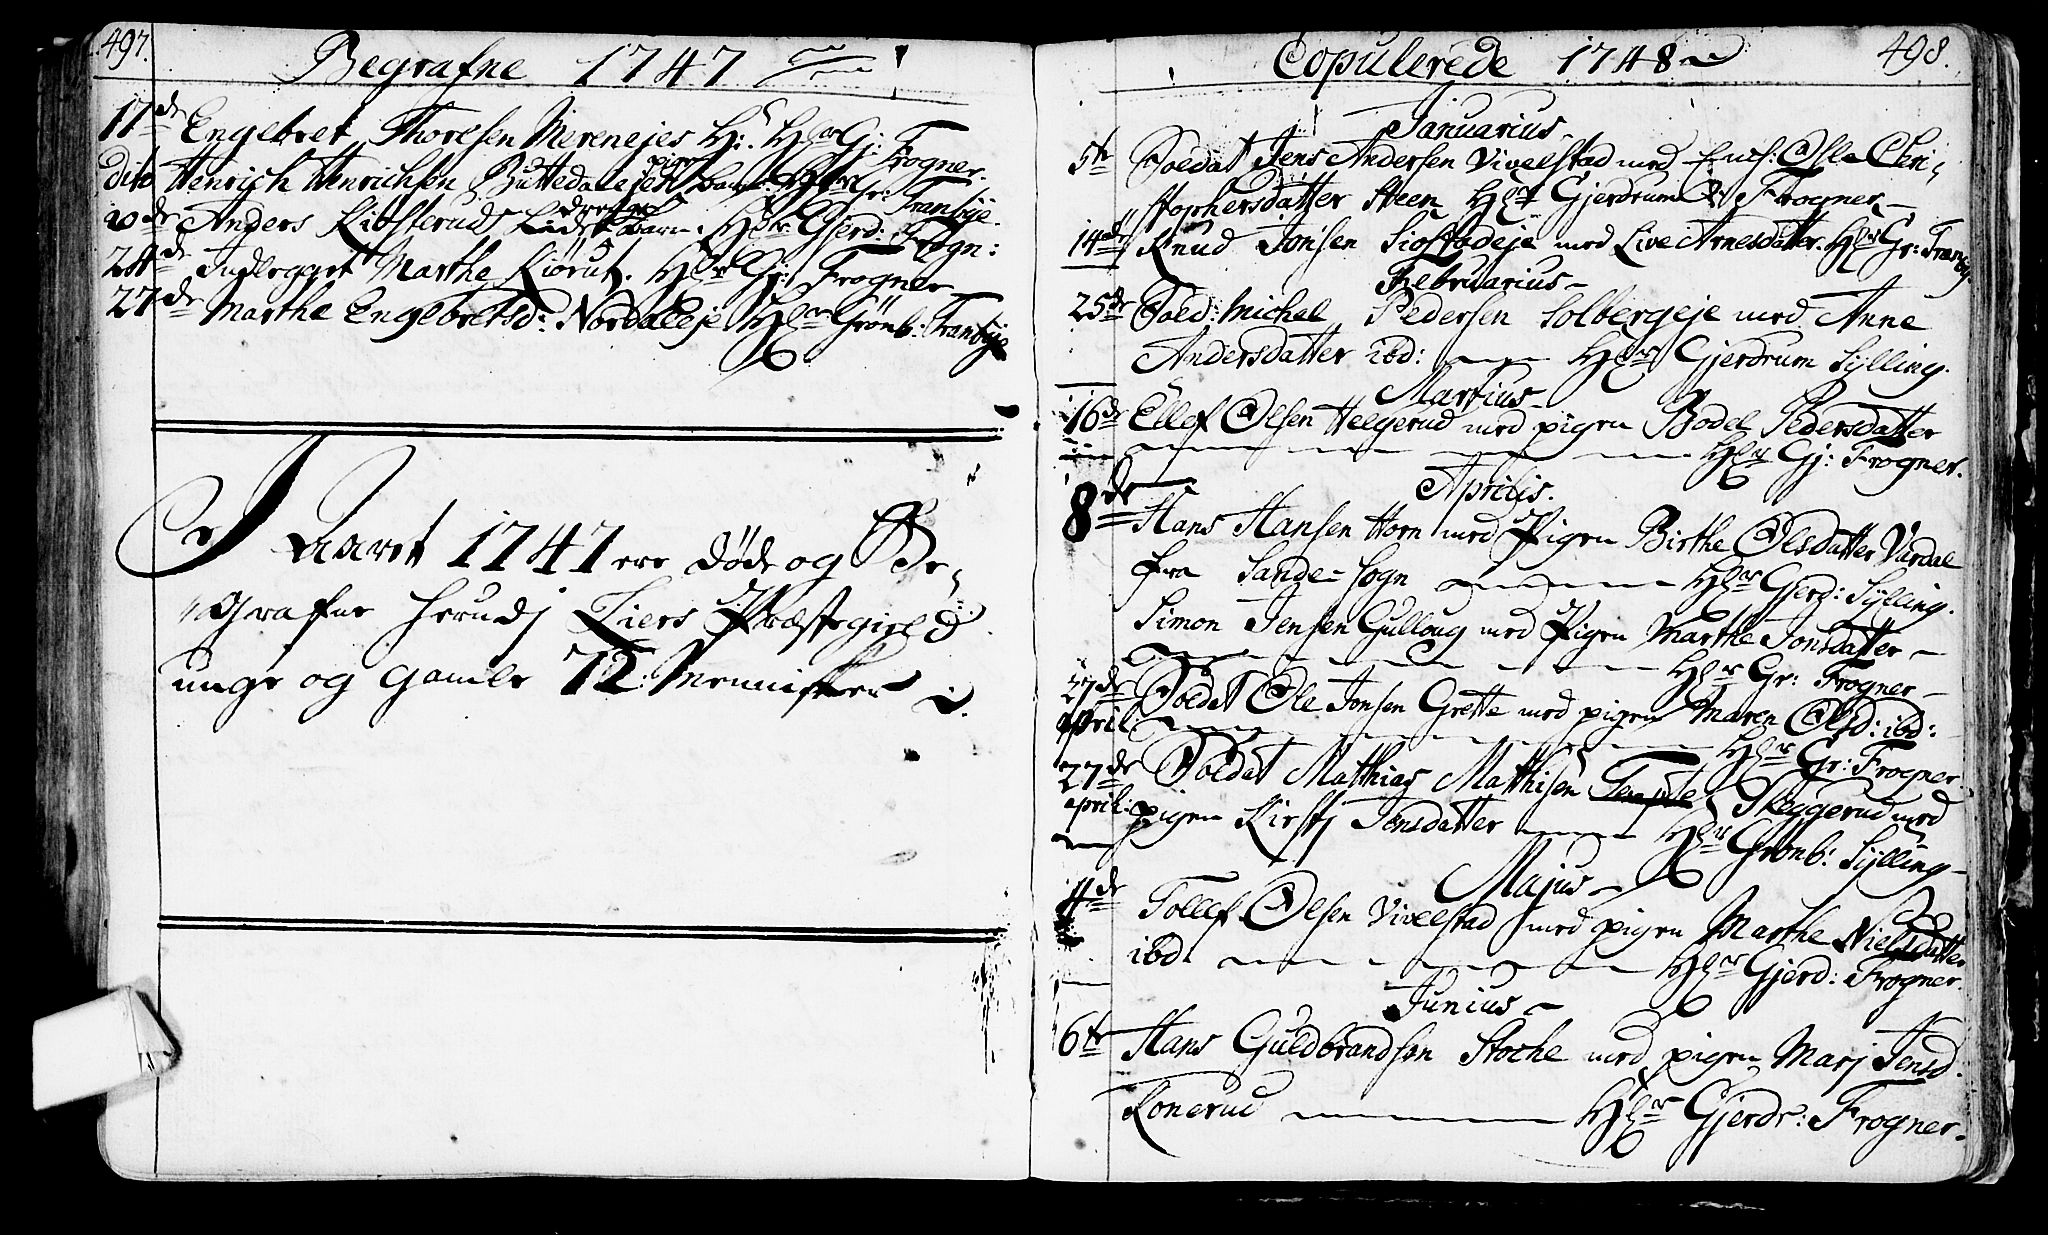 497.
Begrafne 1747
17de Engebret Thoresen Merenejes H: Hr Gj: Frogner.
dito Henrich Henrichsen Buttedalsejes pige Barn. Hr Gr: Tranbye.
20de Anders Kiøsteruds lidet drenge Barn. Hr Gjerd: Frogn:
24de Inderggert Marthe Kiørut. Hr Gj: Frogner
27de Marthe Engebretsd: Nordaleje Hr Grönb: Tranbye
I Aaret 1747 ere døde og Be-
grafne herudj Liers Præstegield
unge og gamle 72 Mennisker
498.
Copulerede 1748
Januarius
5te Soldat Jens Andersen Vivelstad med Ench: Osle Chri-
stophersdatter Steen Hr Gjerdrum Frogner
14de Knud Jonsen Siøstadeje med Live Arnesdatter. Hr Gr: Tranby
Februarius
25de Sold: Michel Pedersen Solbergeje med Anne
Andersdatter ibd: Hr Gjerdrum Sylling.
Martius
16de Ellef Olsen Helgerud med pigen Bodel Pedersdatter
Hr Gj: Frogner.
Aprilis.
8de Hans Hansen Horn med Pigen Birthe Olsdatter Vardal
fra Sande Sogn Hr Gjerd: Sylling.
Simon Jensen Gulloug med Pigen Marthe Jonsdatter
Hr Gr: Frogner
27de Soldat Ole Jonsen Grette med pigen Maren Olsd: ibd:
april: Hr Gr: Frogner
27de Soldat Matthias Matthisen Skeggerud med
april: pigen Kirstj Jensdatter Hr Grönb: Sylling
Majus
4de Tollef Olsen Vivelstad med pigen Marthe Nielsdatter
ibd. Hr Gjerd: Frogner.
Junius
6te Hans Guldbrandsen Stoche med pigen Marj Jensd.
Fonerud Hr Gjerdr: Frogner.